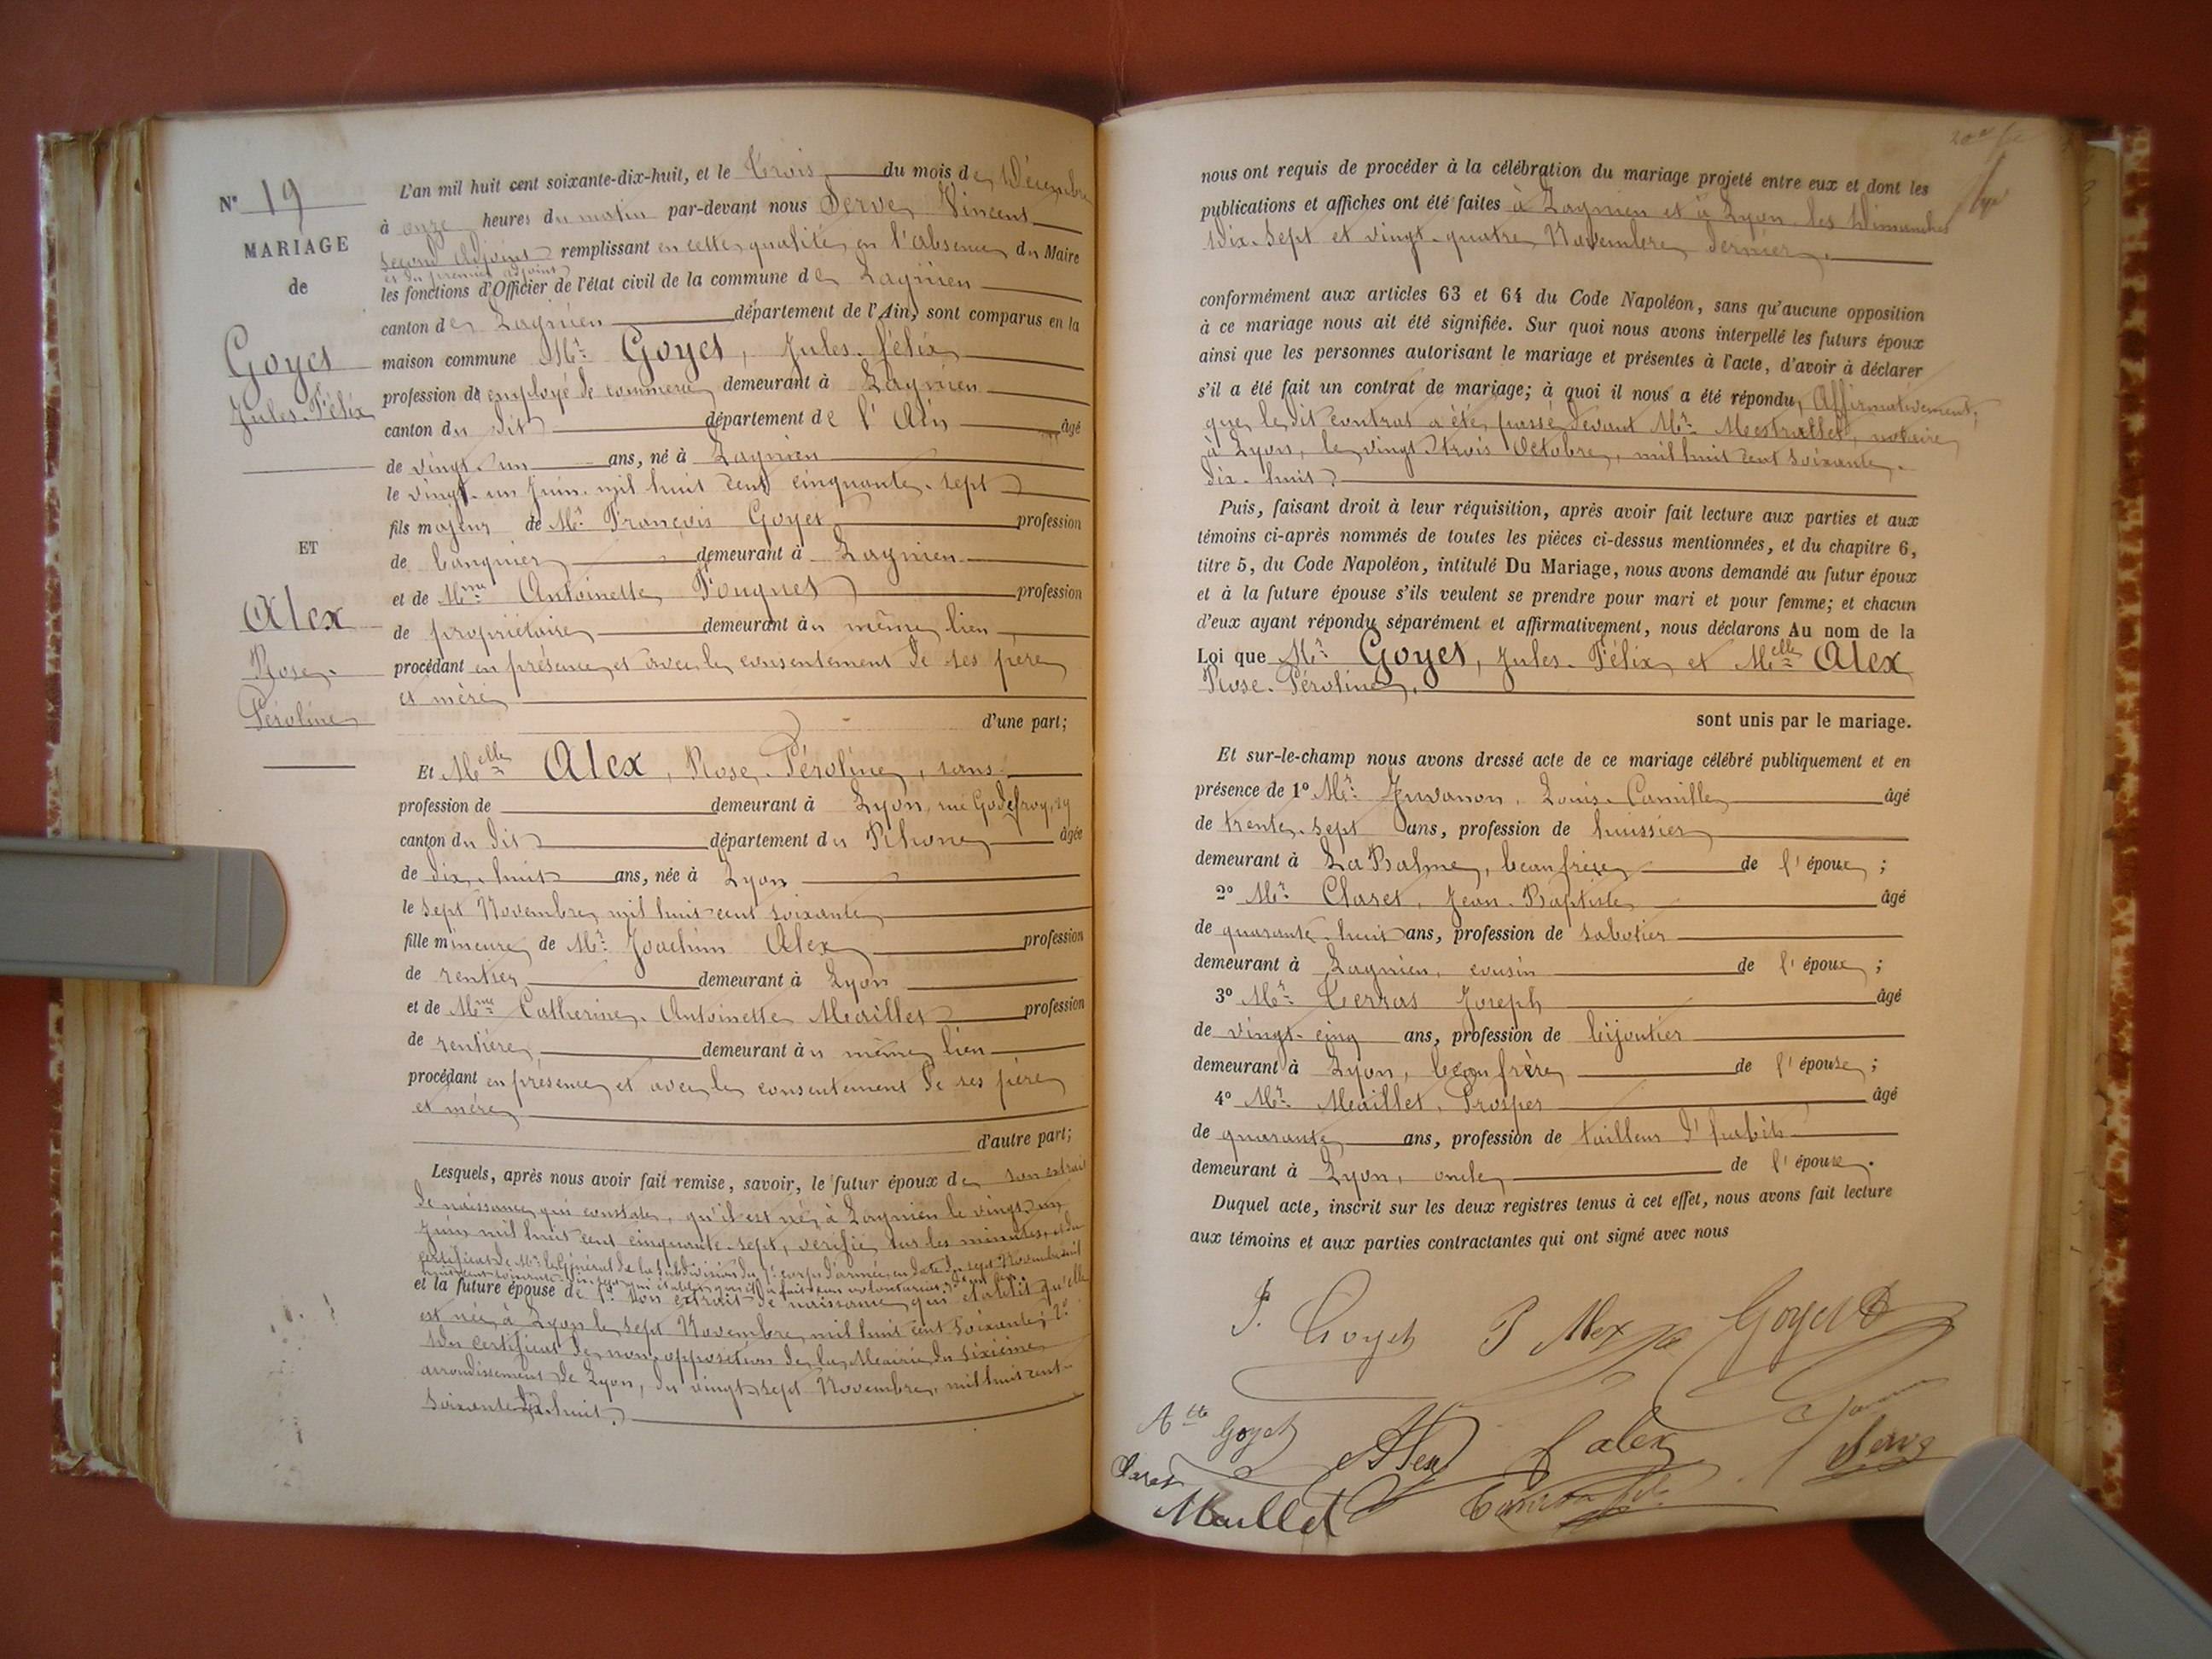 N° 19
MARIAGE
de
Goyet
Jules-Félix
ET
Alex
Rose-
Péroline
L'an mil huit cent soixante-dix-huit, et le trois du mois de Décembre
à onze heures du matin par-devant nous Serve, Vincent
second adjoint remplissant en cette qualité, en l'absence du Maire
et du premier adjoint
les fonctions d'Officier de l'état civil de la commune de Lagnieu
canton de Lagnieu département de l'Ain, sont comparus en la
maison commune Mr Goyet, Jules-Félix
profession de employé de commerce demeurant à Lagnieu
canton du dit département de l'Ain âgé
de vingt-un ans, né à Lagnieu
le vingt-un Juin mil huit cent cinquante-sept
fils majeur de Mr François Goyet profession
de banquier demeurant à Lagnieu
et de Mme Antoinette Fouquet profession
de propriétaire demeurant au même lieu
procédant en présence et avec le consentement de ses père
et mère
d'une part;
Et Melle Alex, Rose-Péroline, sans
profession de demeurant à Lyon, rue Godefroy, 29
canton du dit département du Rhône âgée
de dix-huit ans, née à Lyon
le sept Novembre mil huit cent soixante
fille mineure de Mr Joachim Alex profession
de rentier demeurant à Lyon
et de Mme Catherine-Antoinette Maillet profession
de rentière demeurant au même lieu
procédant en présence et avec le consentement de ses père
et mère
d'autre part;
Lesquels, après nous avoir fait remise, savoir, le futur époux de son extrait
de naissance qui constate, qu'il est né à Lagnieu le vingt-un
Juin mil huit cent cinquante-sept, vérifié sur les minutes, et du
certificat de Mr le Général de la subdivision du 7e corps d'armée, en date du sept Novembre mil
huit cent soixante-dix-sept qui
et la future épouse de 1° son extrait de naissance qui établit qu'elle
est née à Lyon le sept Novembre mil huit cent soixante; 2°
du certificat de non-opposition de la Mairie du sixième
arrondissement de Lyon, du vingt-sept Novembre, mil huit cent
soixante-dix-huit.
nous ont requis de procéder à la célébration du mariage projeté entre eux et dont les
publications et affiches ont été faites à Lagnieu et à Lyon les Dimanches
dix-sept et vingt-quatre Novembre dernier.
conformément aux articles 63 et 64 du Code Napoléon, sans qu'aucune opposition
à ce mariage nous ait été signifiée. Sur quoi nous avons interpellé les futurs époux
ainsi que les personnes autorisant le mariage et présentes à l'acte, d'avoir à déclarer
s'il a été fait un contrat de mariage; à quoi il nous a été répondu, Affirmativement,
que le dit contrat a été passé devant Mr Mestrallet, notaire
à Lyon, le vingt-trois Octobre, mil huit cent soixante-
dix-huit
Puis, faisant droit à leur réquisition, après avoir fait lecture aux parties et aux
témoins ci-après nommés de toutes les pièces ci-dessus mentionnées, et du chapitre 6,
titre 5, du Code Napoléon, intitulé Du Mariage, nous avons demandé au futur époux
et à la future épouse s'ils veulent se prendre pour mari et pour femme; et chacun
d'eux ayant répondu séparément et affirmativement, nous déclarons Au nom de la
Loi que Mr Goyet, Jules-Félix et Melle Alex
Rose-Péroline,
sont unis par le mariage.
Et sur-le-champ nous avons dressé acte de ce mariage célébré publiquement et en
présence de 1° Mr Juvanon, Louis-Camille âgé
de trente-sept ans, profession de huissier
demeurant à La Balme, beau frère de l'époux;
2° Mr Claret, Jean-Baptiste âgé
de quarante-huit ans, profession de sabotier
demeurant à Lagnieu, cousin de l'époux;
3° Mr Terras Joseph âgé
de vingt-cinq ans, profession de bijoutier
demeurant à Lyon, beau frère de l'épouse;
4° Mr Maillet, Prosper âgé
de quarante ans, profession de tailleur d'habits
demeurant à Lyon, oncle de l'épouse.
Duquel acte, inscrit sur les deux registres tenus à cet effet, nous avons fait lecture
aux témoins et aux parties contractantes qui ont signé avec nous
J. Goyet P Alex Goyet
Atte Goyet Alex J alex Serve
Claret
Maillet